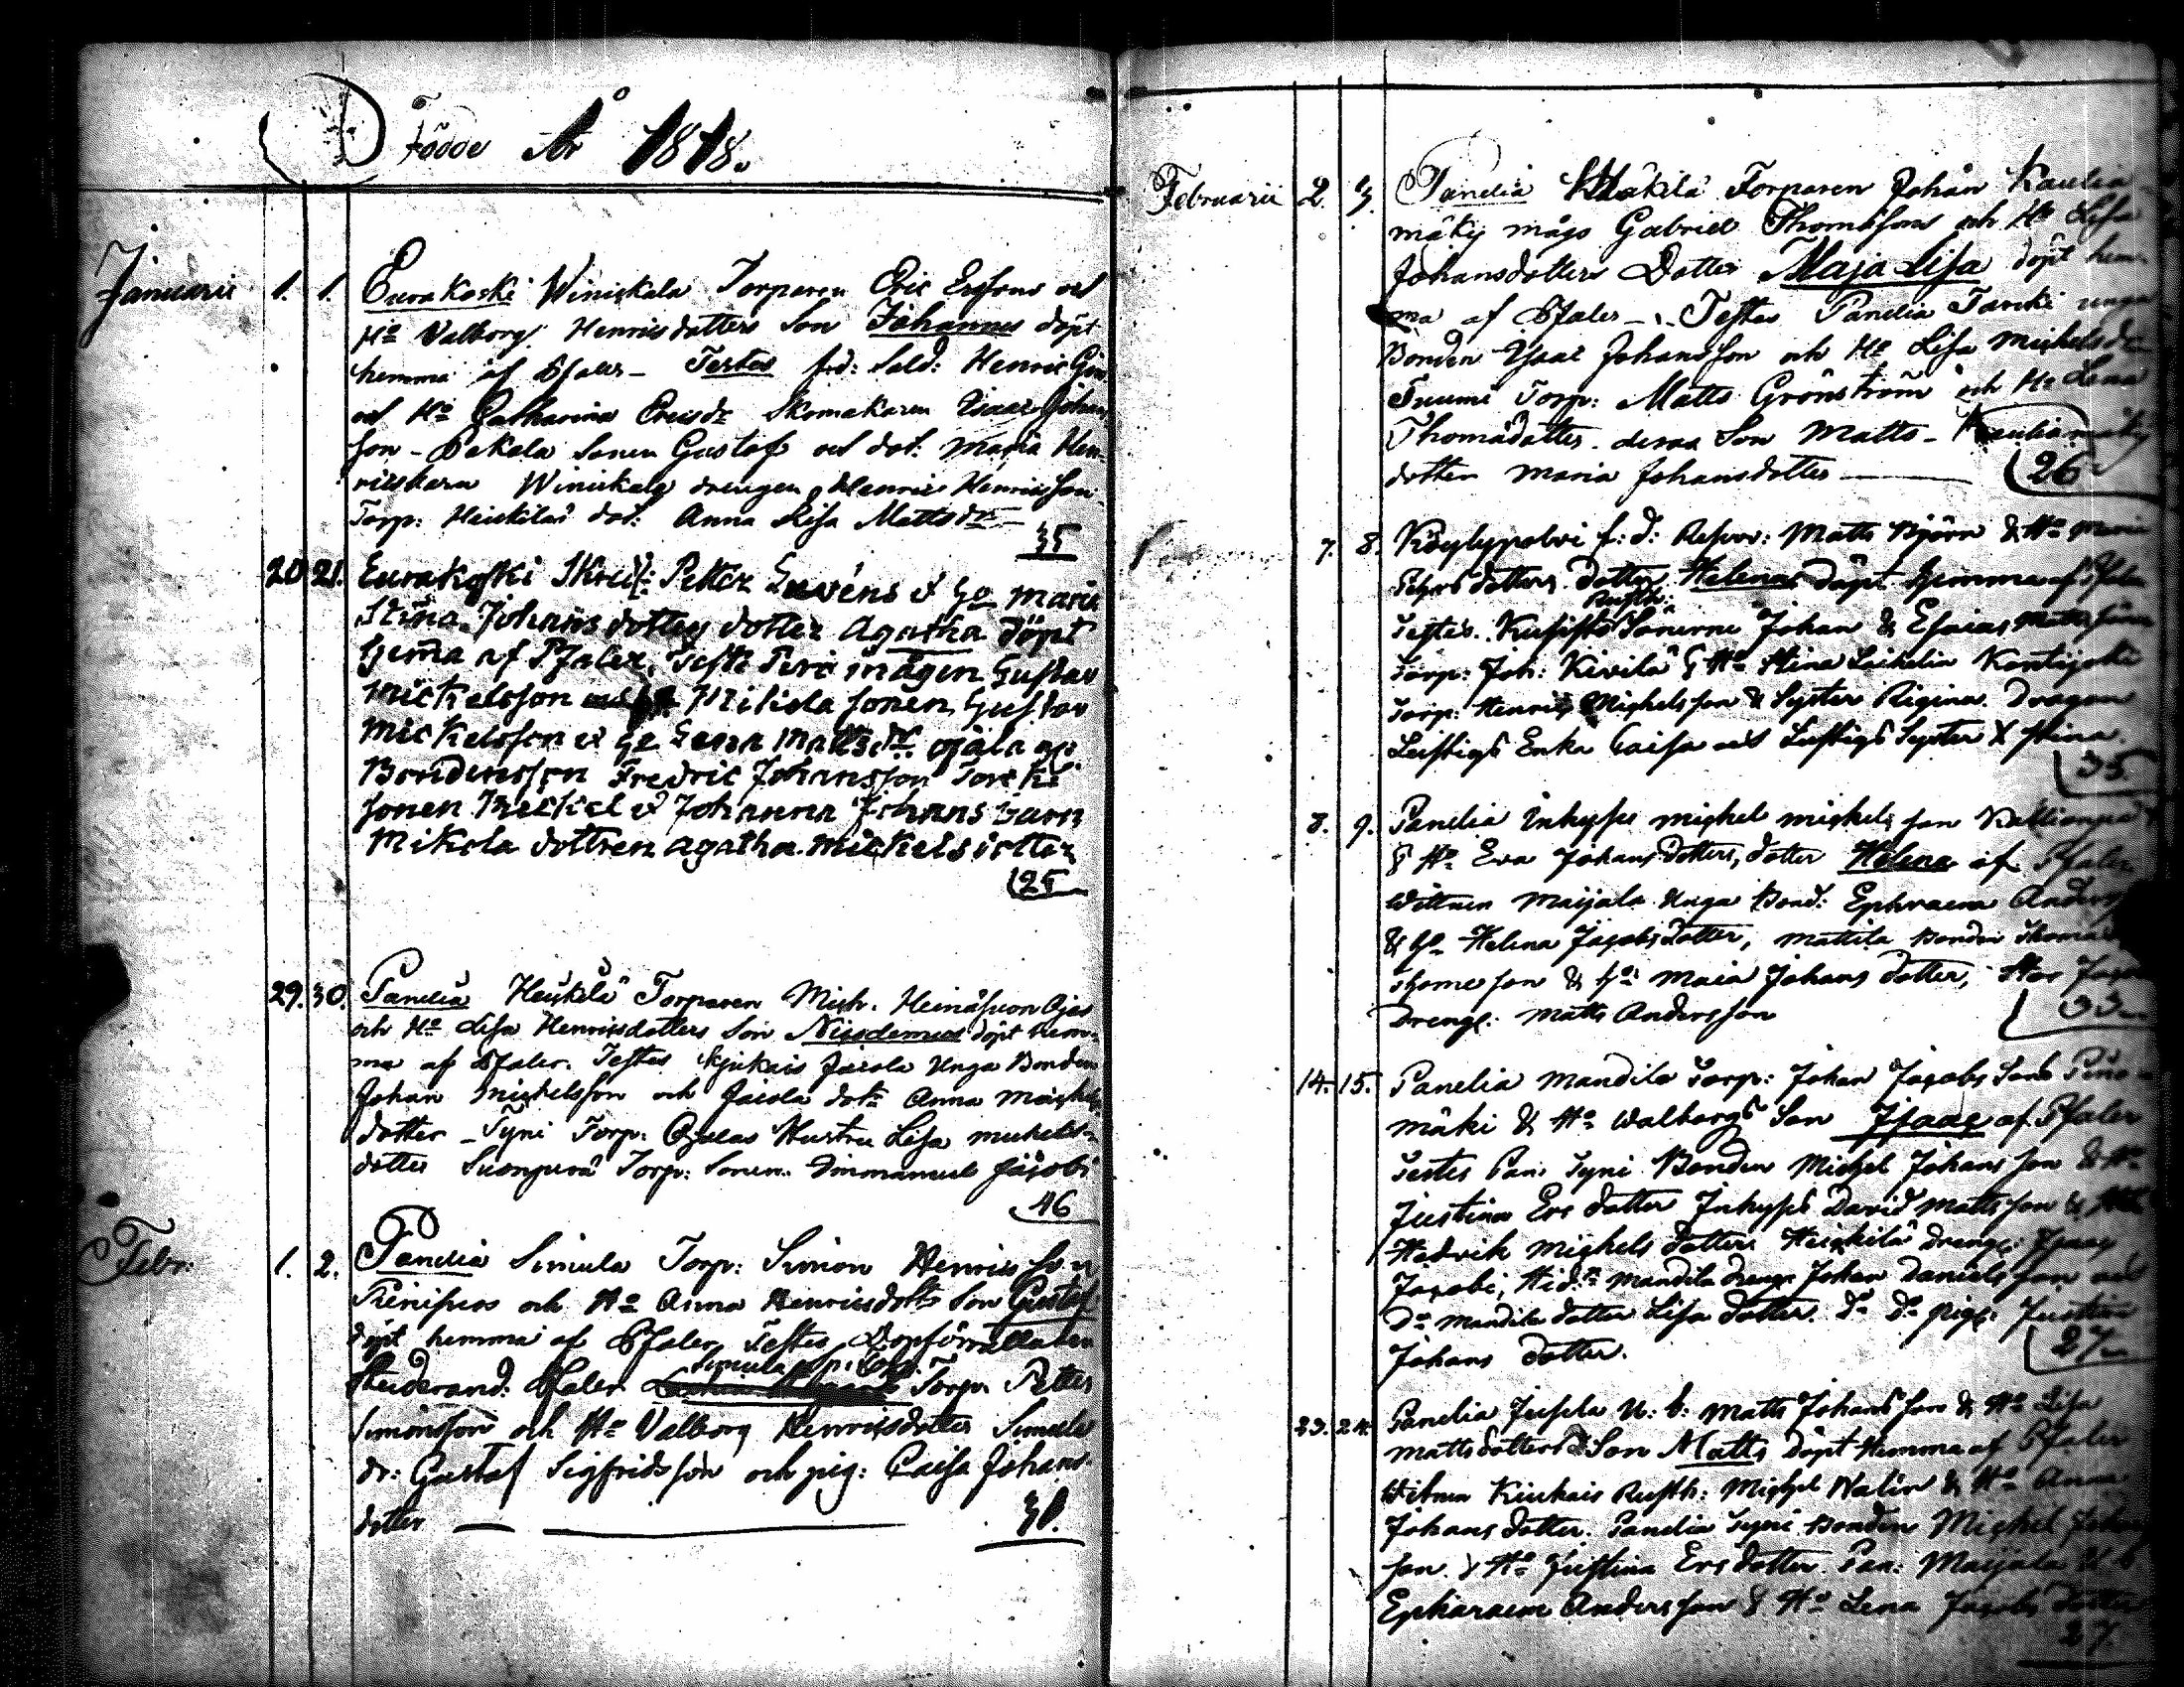 Födde År 1818.
Januarii 1. 1. Eurakoski Winickala Torparen Eric Ersons och
Ho Valborg Henricsdotters Son Johannes döpt
hemma af Pfaler - Testes förd: Sold: Henric
och Ho Catharina Ericsdr Skomakaren Isaac Johan
son - Pekola Sonen Gustaf och dot: Maria Hen-
ricskarn Winickala drengen Henric Henricsson
Torp: Heickilas dot: Anna Lisa Mattsdr
35
20 21. Eurakoski Petter & Ho Maria
Stina Johansdotters dotter Agatha döpt
hema af Pfaler. Teste mågen Gustav
Mickelsson Mikola sonen Gustav
Mickelsson & Ho Lena Mattsdr. ojala
Bondensson Fredric Johansson
sonen & Johanna Johans barn
Mikola dottren agatha Mickelsdotter
25
29. 30. Panelia Heickilä Torparen Mich. Ojas
och Ho Lisa Henricsdotters Son Nicodemus döpt hem-
ma af Pfaler. Testes Kjukais Jacola Unga Bonden
Johan Michelsson och Jacola dotr Anna Michels
dotter - Tyni Torp: Ojalas Hustru Lisa Michels-
dotter Suonperä Torp: Sonen Immanuel Jacobi
46
Febr: 1. 2. Panelia Simula Torp: Simon Henricsson
och Ho Anna Henricsdotts Son Gustaf
döpt hemma af Pfaler Testes Dopförrättaren
Studerand: Pfaler Simula Torp. Petter
Simonsson och Ho Valborg Henricsdotter Simula
dr: Gustaf Sigfridsson och pig: Caisa Johans
dotter 30.
Februarii 2. 3. Panelia Heickilä Torparen Johan Kaulia
mäky mågs Gabriel Thomassons och Ho Lisa
Johansdotters Dotter Maja Lisa döpt hem-
ma af Pfaler - Testes Panelia Tarcki unga
Bonden Isaac Johansson och Ho Lisa Michelsdr
Tuumi Torp: Matts Grönström och Ho Lena
Thomädotter. deras Son Matts - Kauliamäky
dotter Maria Johansdotter
26
7. 8. Köylypolvi f: d: Reserv: Matts Björn & Ho Maria
dotters dotter Helena döpt hemma af Pfaler
Testes. Rusth: Sönerne Johan & Esaias Mattssöner
Torp: Joh: Kivilä & Ho Stina Kontijoki
Torp: Henric Michelsson & Syster Regina. Dragon
Leistigs Enka Caisa och Leistigs Syster Stina.
35
8. 9. Panelia Inhyses Michel Michelsson Kallionpää
& Ho Eva Johansdotters, dotter Helena af Pfaler
Wittnen Maijala Unga Bond: Ephraim Anders
& Ho Helena Jacobsdotter, Mattila Bonden Thomas
Thomeson & Ho Maia Johans dotter,
Dreng: Matts Andersson
33
14. 15. Panelia Mandila Torp: Johan Jacobs Sons
mäki & Ho Walborgs Son Isaac af Pfaler
Testes Pan: Tyni Bonden Michel Johansson & Ho
Justina Ersdotter Inhyses David Mattsson & Ho
Hedvik Michels dotter Heickilä dreng: Isaac
Jacobi, Mandila drengn Johan Danielsson och
Do Mandila dotter Lisa dotter. Do Do pig: Justina
Johans dotter.
27
23. 24. Panelia Jussila U: b: Matts Johansson & Ho Lisa
Mattsdotters Son Matts döpt hemma af Pfaler
Witnen Kiukais Rusth: Michel Walin & Ho Anna
Johansdotter. Panelia Tyni Bonden Michel Johans
son. & Ho Justina Ersdotter. Pan: Maijala U b
Epharaim Andersson & Ho Lena Jacobsdotter
27